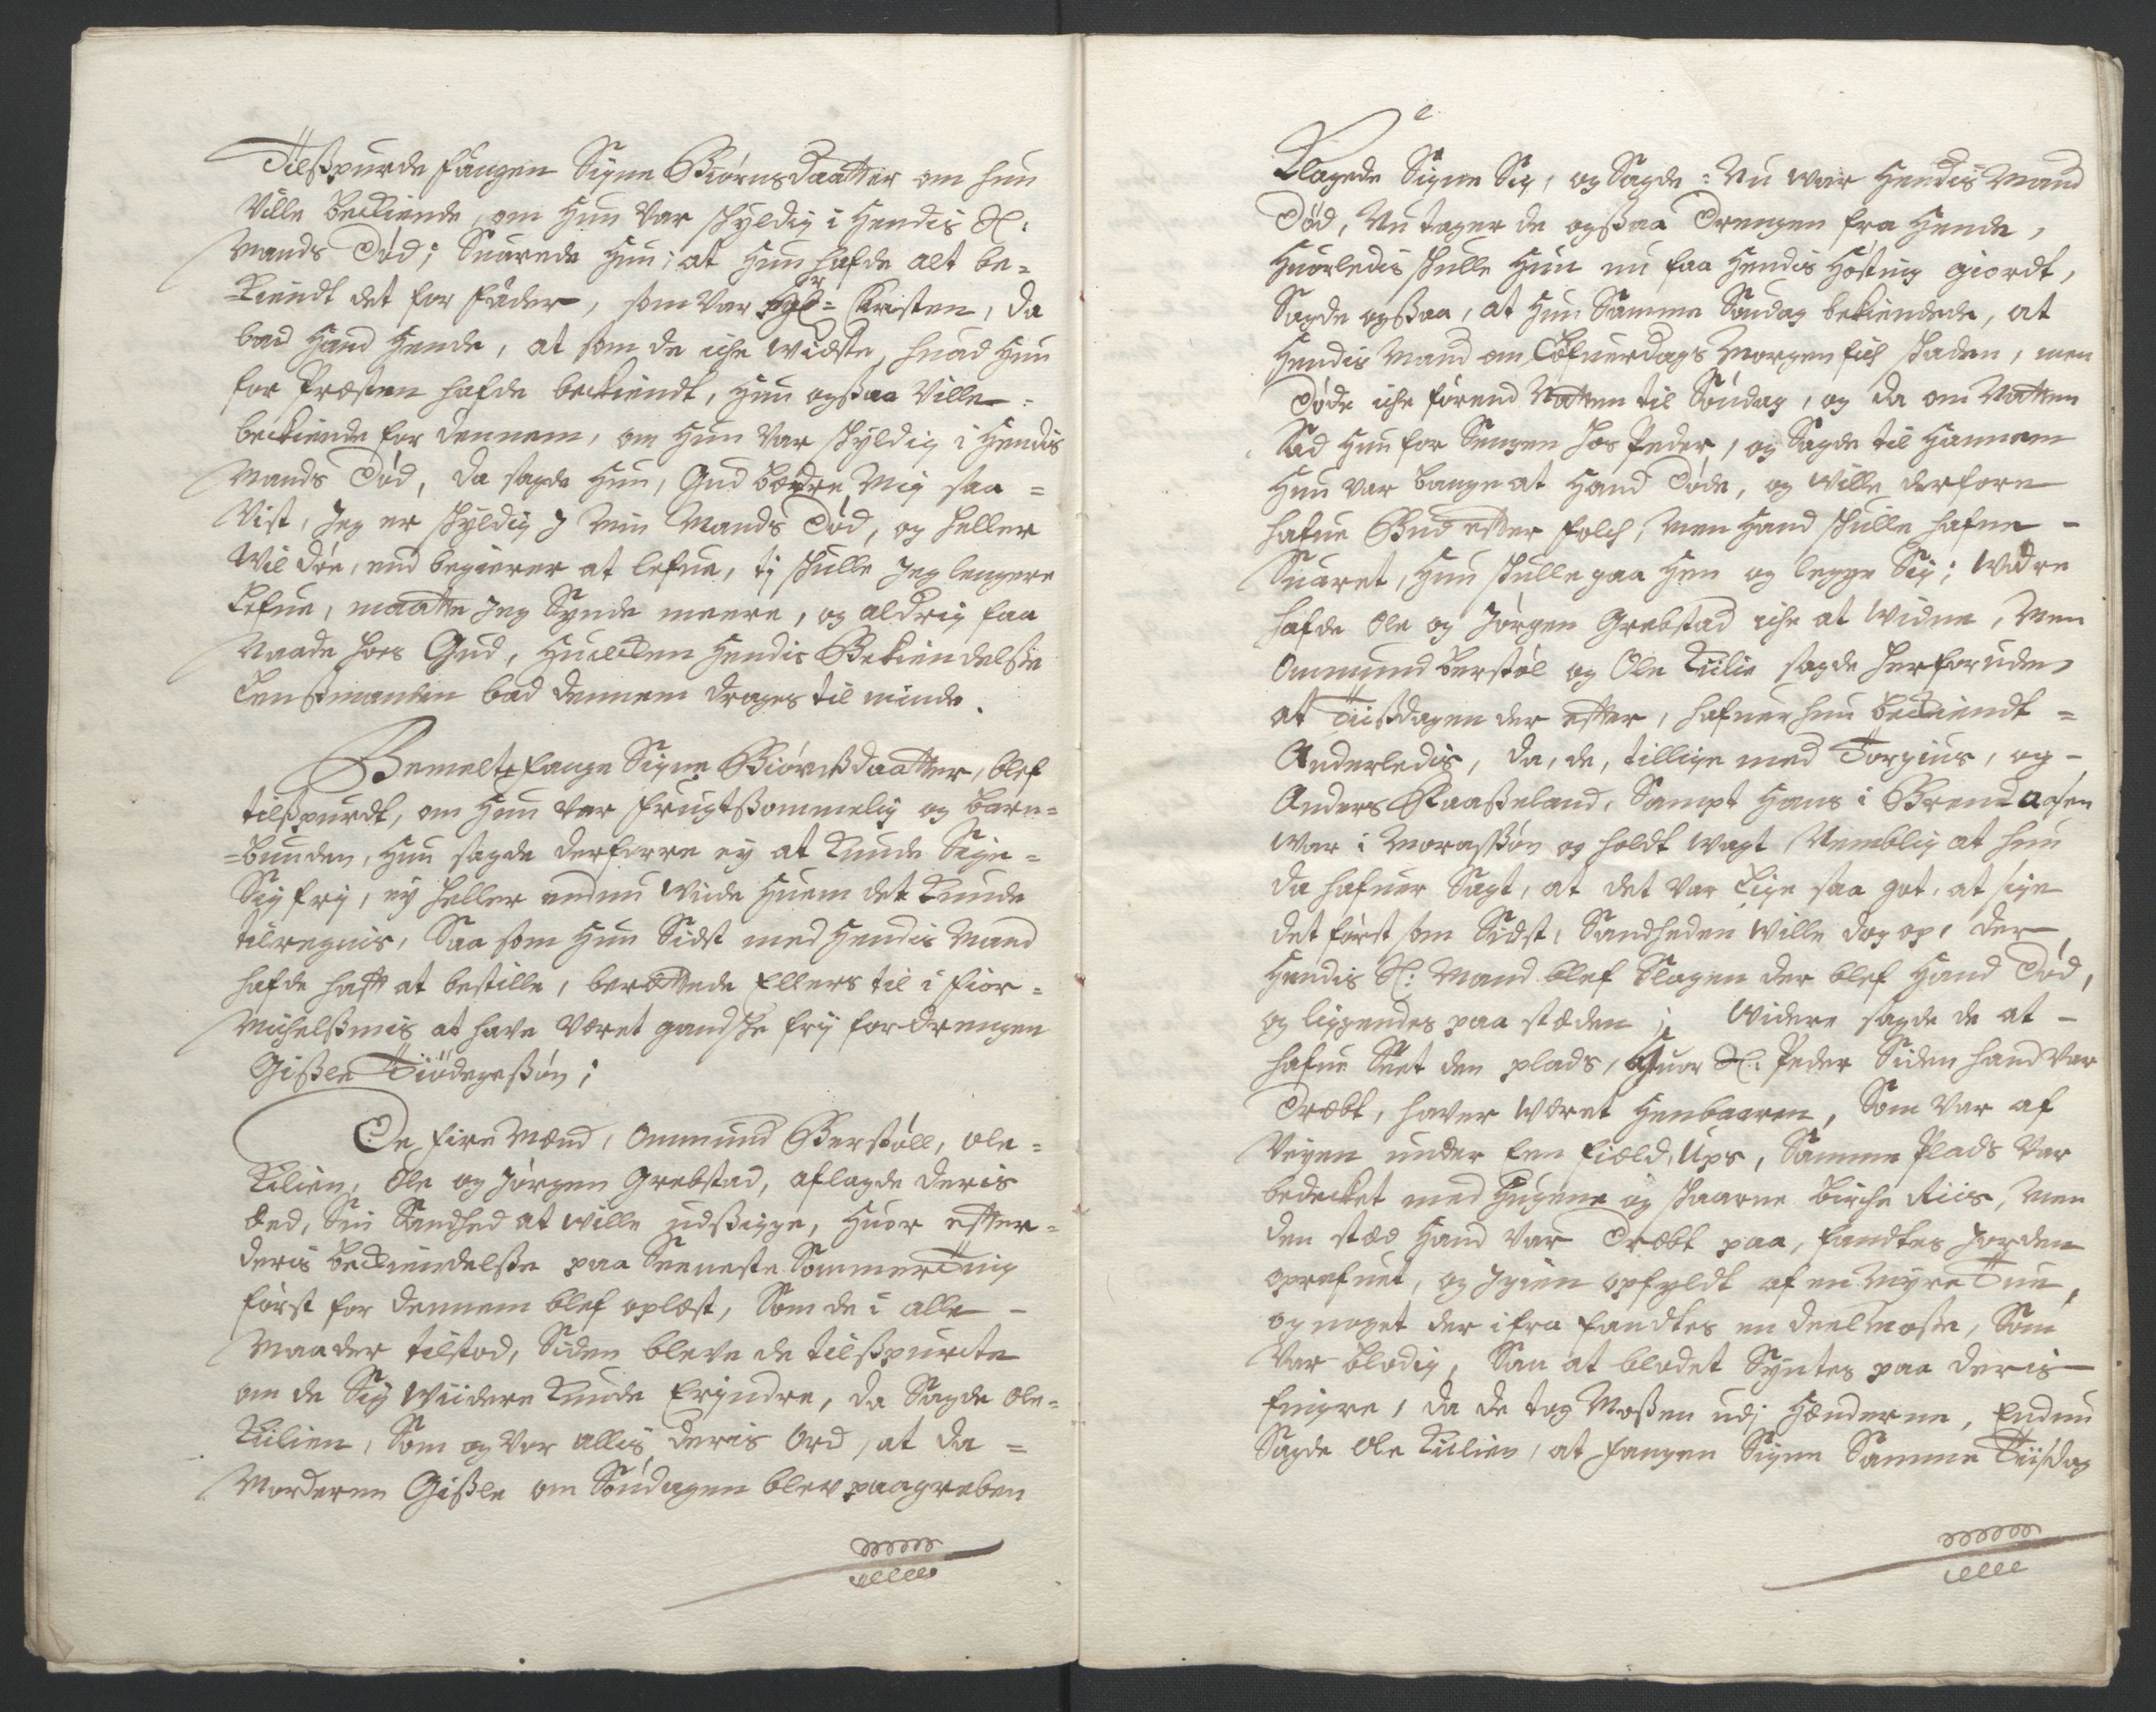 Tilßpurde fangen Signe Biørnsdaatter om hun
Ville beckiende, om hun var schyldig i hendis Sl:
Mands Død; Suarede hun; at hun hafde alt be-
-kiendt det for fader, som var hr Christen, da
bad hand hende, at som de iche widste, huad hun
for Præsten hafde beckiendt, hun ogßaa Ville
beckiende for dennem, om hun var schyldig i hendis
Mands Død, da sagde hun, Gud bædre Mig saa =
Vist, Jeg er schyldig J Min Mands Død, og heller
Wil døe, end begierer at lefue, tj schulle Jeg lengere
Lefue, maatte Jeg Synde meere, og aldrig faa
Naade hoes Gud, huilcken hendis Bekiendelße
Lenßmanden bad dennem drages til minde.
Bemelte fange Signe Biørnßdaatter, blef
tilßpurdt, om hun var frugtßommelig og barn=
=bunden, hun sagde derforre ey at kunde Sige=
Sig fry, ey heller endnu wide huem det kunde
tilregnis, Saa som hun Sidst med hendis Mand
hafde hatt at bestille, berettede Ellers til i fior=
Michelßmis at have været gandsche fry for drengen
Gißle Tiødegeßøn;
De fire Mænd, Ommund Berstøll, Ole=
Kilien, Ole og Jørgen Grebstad, aflagde deris
Eed, Sin Sandhed at wille udßigge, huor efter=
deris beckiendelße paa Seeneste Sommerting
først for dennem blef oplæst, Som de i alle -
Maader tilstod, Siden bleve de tilßpurte
om de Sig wiidere kunde Erjndre, da Sagde Ole=
Kiilien, Som og var allis deris Ord, at da =
Morderen Gißle om Søndagen blev paagreben
Klagede Signe Sig, og Sagde: Nu war hendis Mand
Død, Nu tager de ogßaa Drengen fra hende,
huorledis schulle hun nu faa hendis høsting giordt,
Sagde ogßaa, at hun Samme Søndag bekiendede, at
hendis Mand om Løfuerdags Morgen fich schaden, men
Døde iche førend Natten til Søndag, og da om Natten
Sad hun for Sengen hos Peder, og Sagde til hannem
hun var bange at hand Døde, og wille derfore
hafue Bud efter folch, Men hand schulle hafue -
Suaret, hun schulle gaa hen og legge Sig; Widre
hafde Ole og Jørgen Grebstad iche at widne, Men
Ommund Berstøl og Ole Kiilie sagde herforuden
at Tiißdagen der efter, hafuer hun beckiendt =
Anderledis, da, de, tillige med Torgius, og -
Anders Raaßeland, Sampt Hans i Brendaasen
war i Moraßøn og holdt wagt, Nemblig at hun
da hafuer Sagt, at det var Lige saa got, at sige
det først som Sidst, Sandheden wille dog op, der
hendis Sl: Mand blef Slagen der blef hand Død,
og liggendes paa stæden; Widere sagde de at -
hafue Seet den plads, huor Sl: Peder Siden hand var
Dræbt, haver været henbaaren, Som var af
Veyen under Een field, Ups, Samme Plads var
bedecket med hugene og schaarne birche Riis, Men
den stæd hand var Dræbt paa, fandtes Jorden
oprefuet, og Igien opfyldt af en Myre Tue,
og noget der ifra fandtes en deel Moße, Som
var blodig, Saa at blodet Syntes paa deris
fingre, da de tog Moßen udj hænderne, Endnu
Sagde Ole Kiilien, at fangen Signe Samme Tiißdag